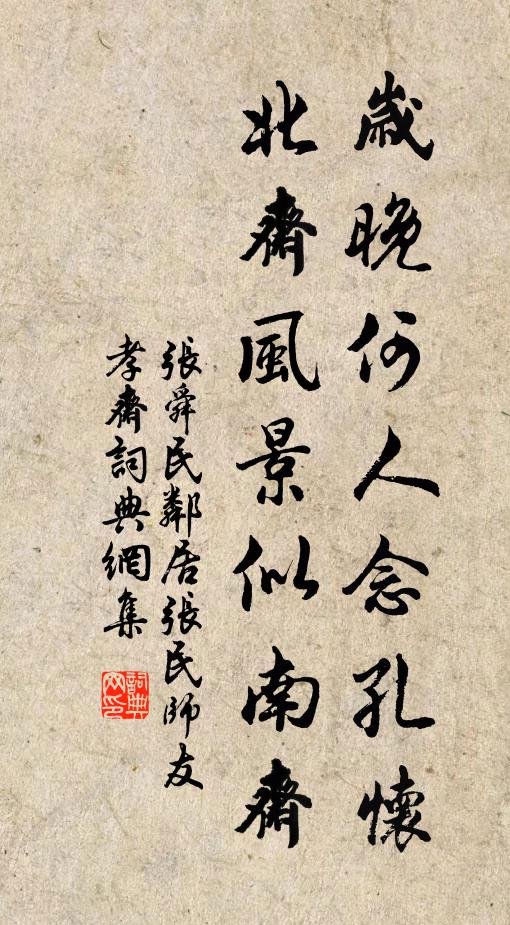 歲晚何人念孔懷
北齋風景似南齋
張舜民鄰居張民師友
孝齋詞典網集
詞典
网印